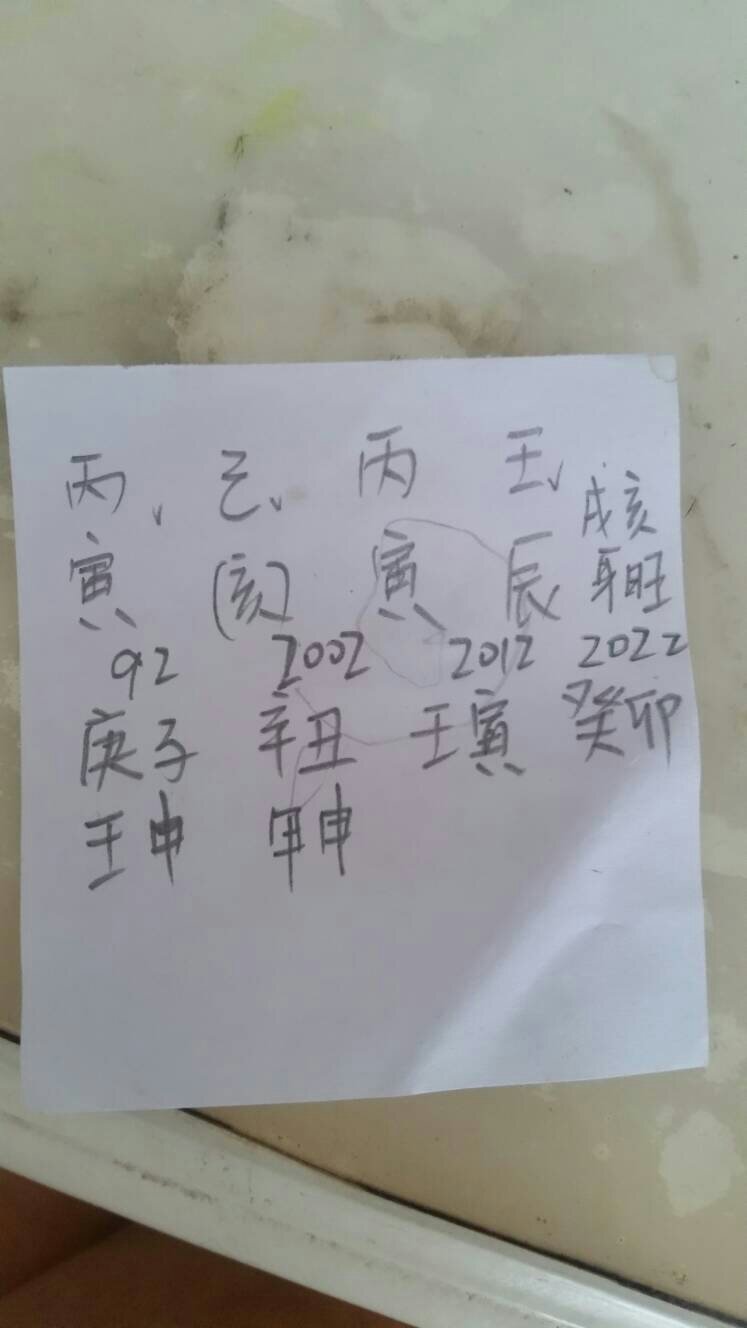 丙、己、丙 壬、
寅 (亥) 寅 辰 戌亥
92 2002 2012 2022
庚子 辛丑 壬寅 癸卯
壬申 甲申